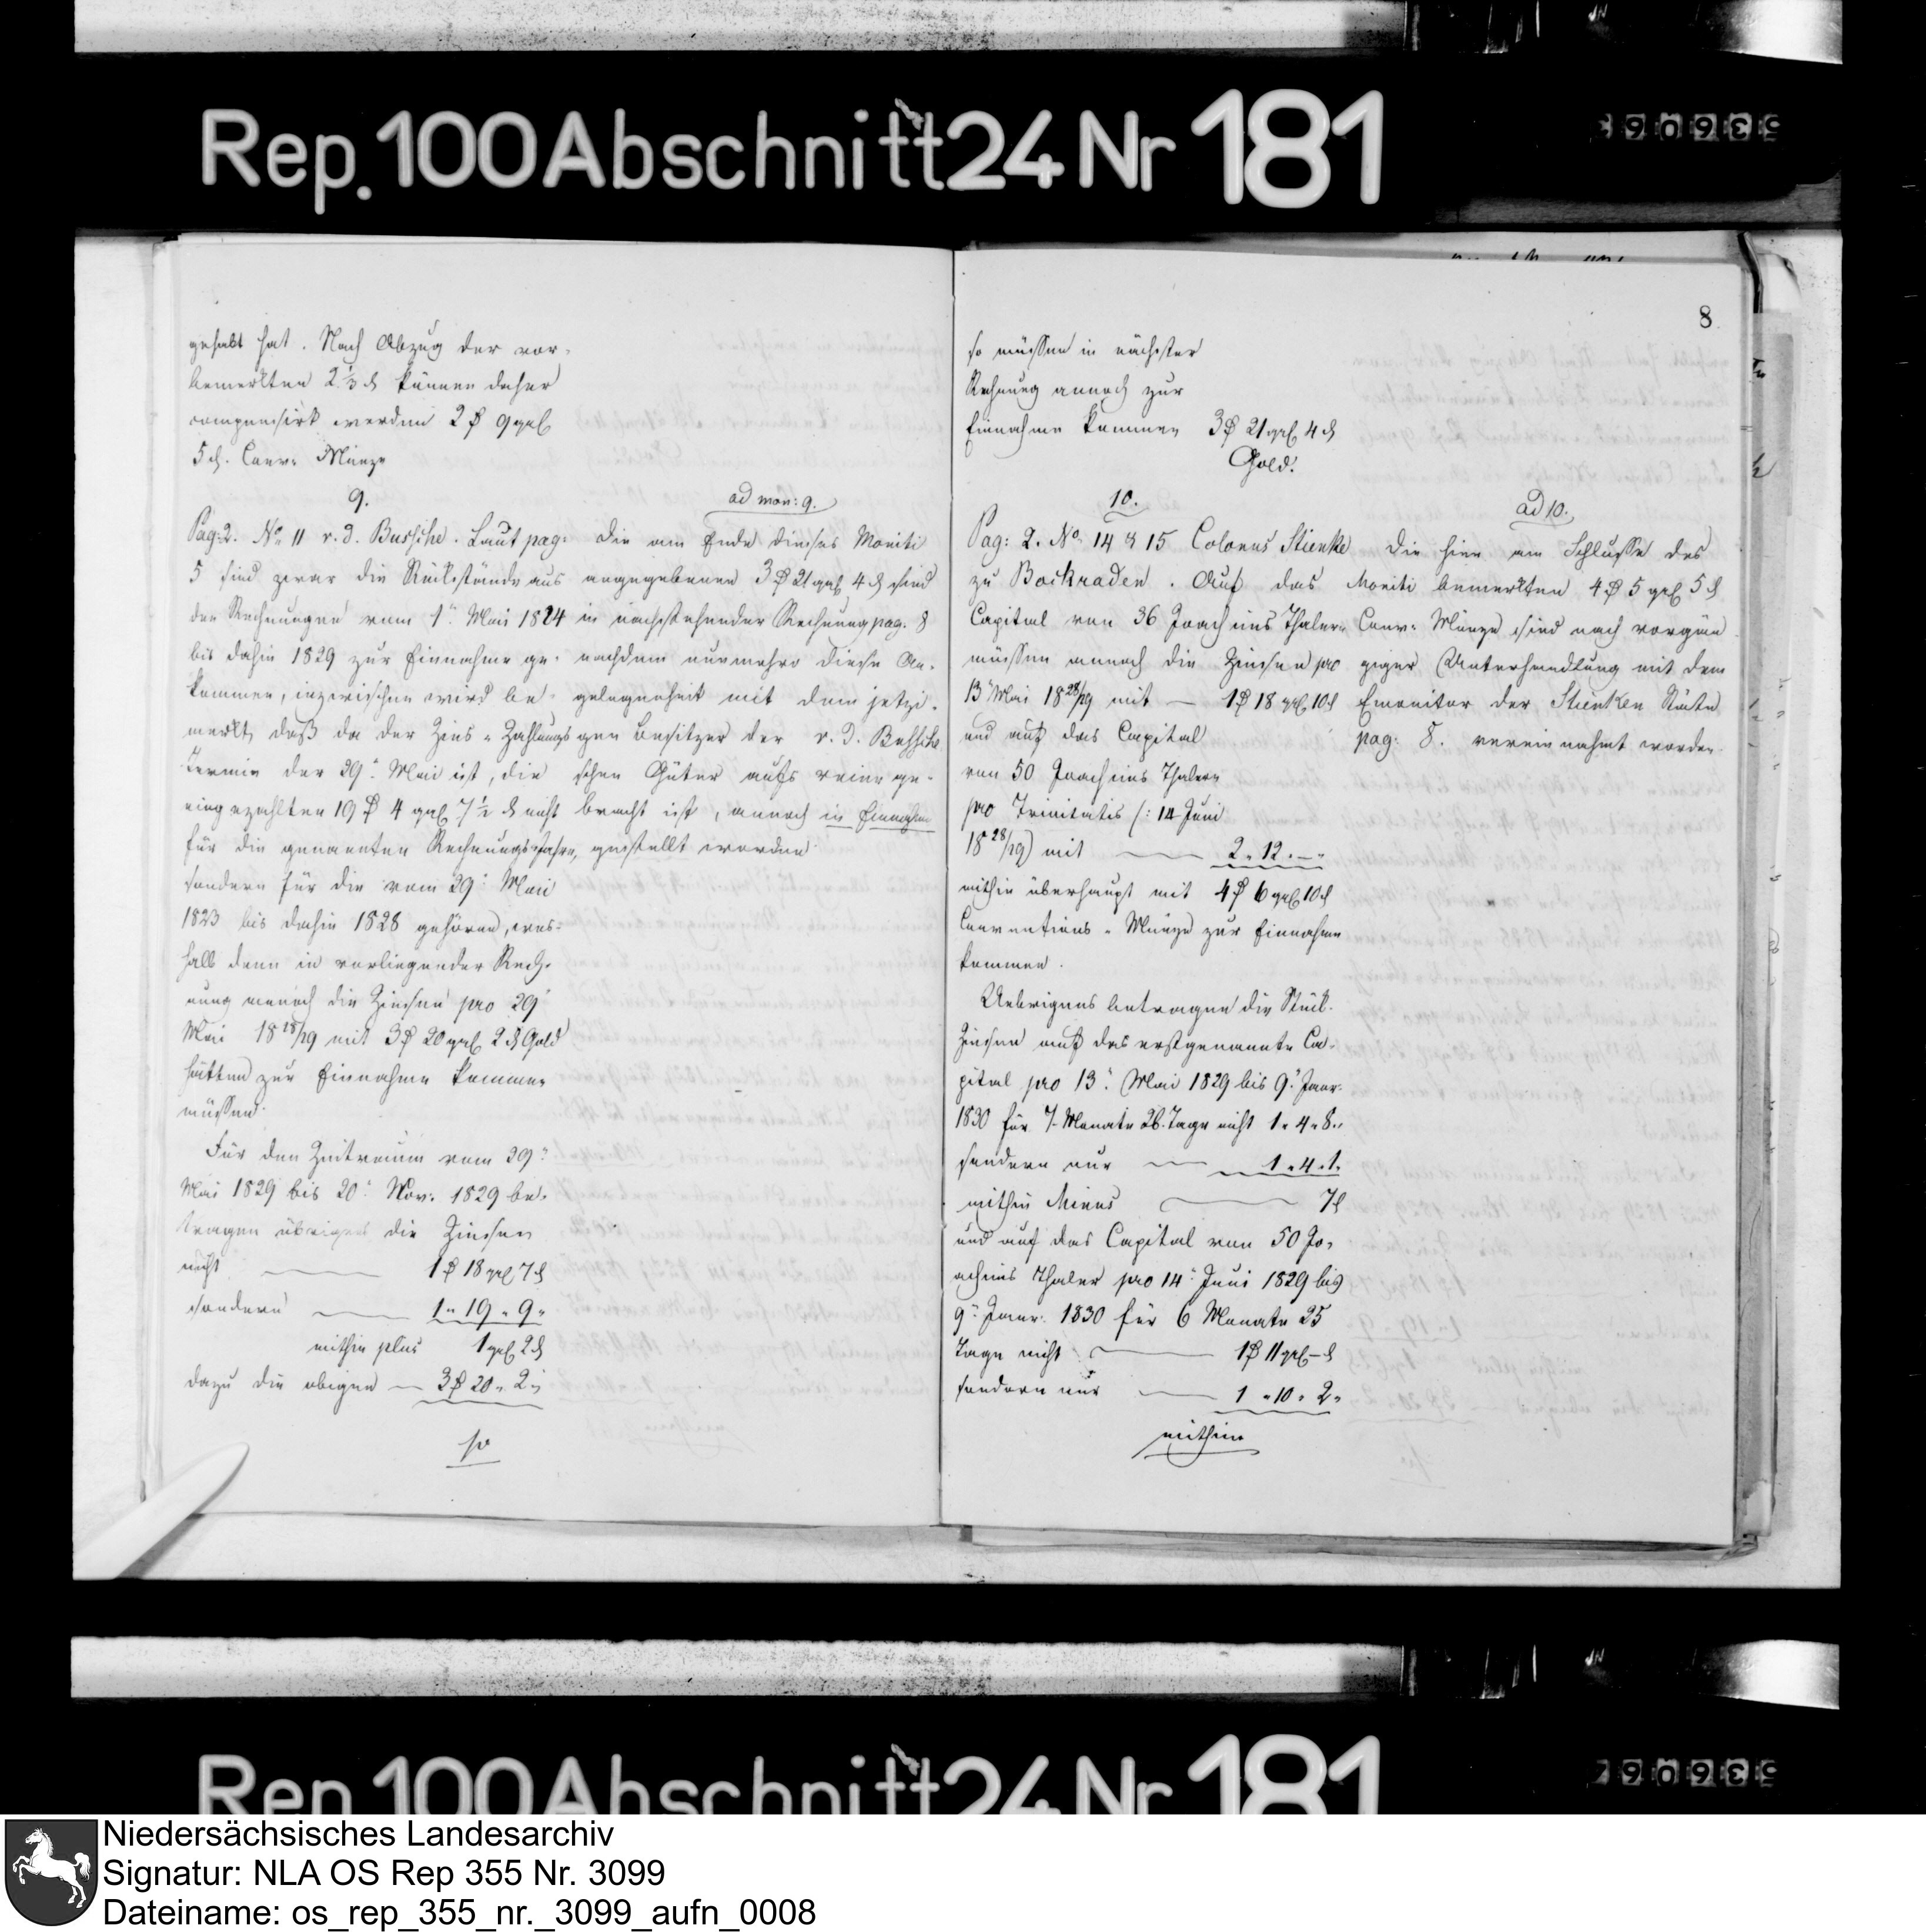 Rep. 100 Abschnitt 24 Nr 181
gehabt hat. Nach Abzug der vor-
bemerkten 2 1/3 ₰ können daher
compensirt werden 2 ₰ 9 ggl
5 ₰. Conv: Münze
9.
Pag: 2. No. 11 v. d. Bussche. Laut pag:
5 sind zwar die Rückstände aus
den Rechnungen vom 1ten Mai 1824
bis dahin 1829 zur Einnahme ge-
kommen, inzwischen wird be-
merkt, daß da der Zins-Zahlungs
Termin der 29te Mai ist, die
eingezahlten 19 ₰ 4 ggl 7 1/2 ₰ nicht
für die genannten Rechnungs-Jahre,
sondern für die vom 29ten Mai
1823 bis dahin 1828 gehören, wes-
halb denn in vorliegender Rech-
nung annoch die Zinsen pro 29ten
Mai 1828/29 mit 3 ₰ 20 ggl 2 ₰ Gold
hätten zur Einnahme kommen
müssen.
Für den Zeitraum vom 29ten
Mai 1829 bis 20ten Nov: 1829 be-
tragen übrigens die Zinsen
nicht 1 ₰ 18 ggl 7 ₰
sondern 1 " 19 " 9 "
mithin plus 1 ggl 2 ₰
dazu die obigen 3 ₰ 20 " 2 "
so
ad mon: 9.
Die am Ende dieses Moniti
angegebenen 3 ₰ 21 ggl 4 ₰ sind
in nachstehender Rechnung pag. 8
nachdem nunmehro diese An-
gelegenheit mit dem jetzi-
gen Besitzer der v. d. Bussche
schen Güter aufs reine ge-
bracht ist, annoch in Einnahme
gestellt worden.
8
so müssen in nächster
Rechnung annoch zur
Einnahme kommen 3 ₰ 21 ggl 4 ₰
Gold.
10.
Pag: 2. No. 14 & 15 Colonus Stienke
zu Bockraden. Auf das
Capital von 36 Joachims Thalern
müssen annoch die Zinsen pro
13 Mai 1828/29 mit 1 ₰ 18 ggl 10 ₰
und auf das Capital
von 50 Joachims Thalern
pro Trinitatis (: 14 Juni
1828/29) mit 2 " 12 " — "
mithin überhaupt mit 4 ₰ 6 ggl 10 ₰
Conventions-Münze zur Einnahme
kommen.
Uebrigens betragen die Stück-
Zinsen auf das erstgenannte Ca-
pital pro 13ten Mai 1829 bis 9ten Janr:
1830 für 7 Monate 26 Tage nicht 1 " 4 " 8 "
sondern nur 1 " 4 " 1 "
mithin Minus 7 ₰
und auf das Capital von 50 Jo-
achims Thaler pro 14ten Juni 1829 bis
9ten Janr. 1830 für 6 Monate 25
Tage nicht 1 ₰ 11 ggl — ₰
sondern nur 1 " 10 " 2 "
mithin
ad 10.
Die hier am Schlusse des
Moniti bemerkten 4 ₰ 5 ggl 5 ₰
Conv: Münze sind nach vorgän
giger Unterhandlung mit dem
Emonitor der Stienken Stäte
pag: 8. vereinnahmt worden.
Rep. 100 Abschnitt 24 Nr 181
Niedersächsisches Landesarchiv
Signatur: NLA OS Rep 355 Nr. 3099
Dateiname: os_rep_355_nr._3099_aufn_0008